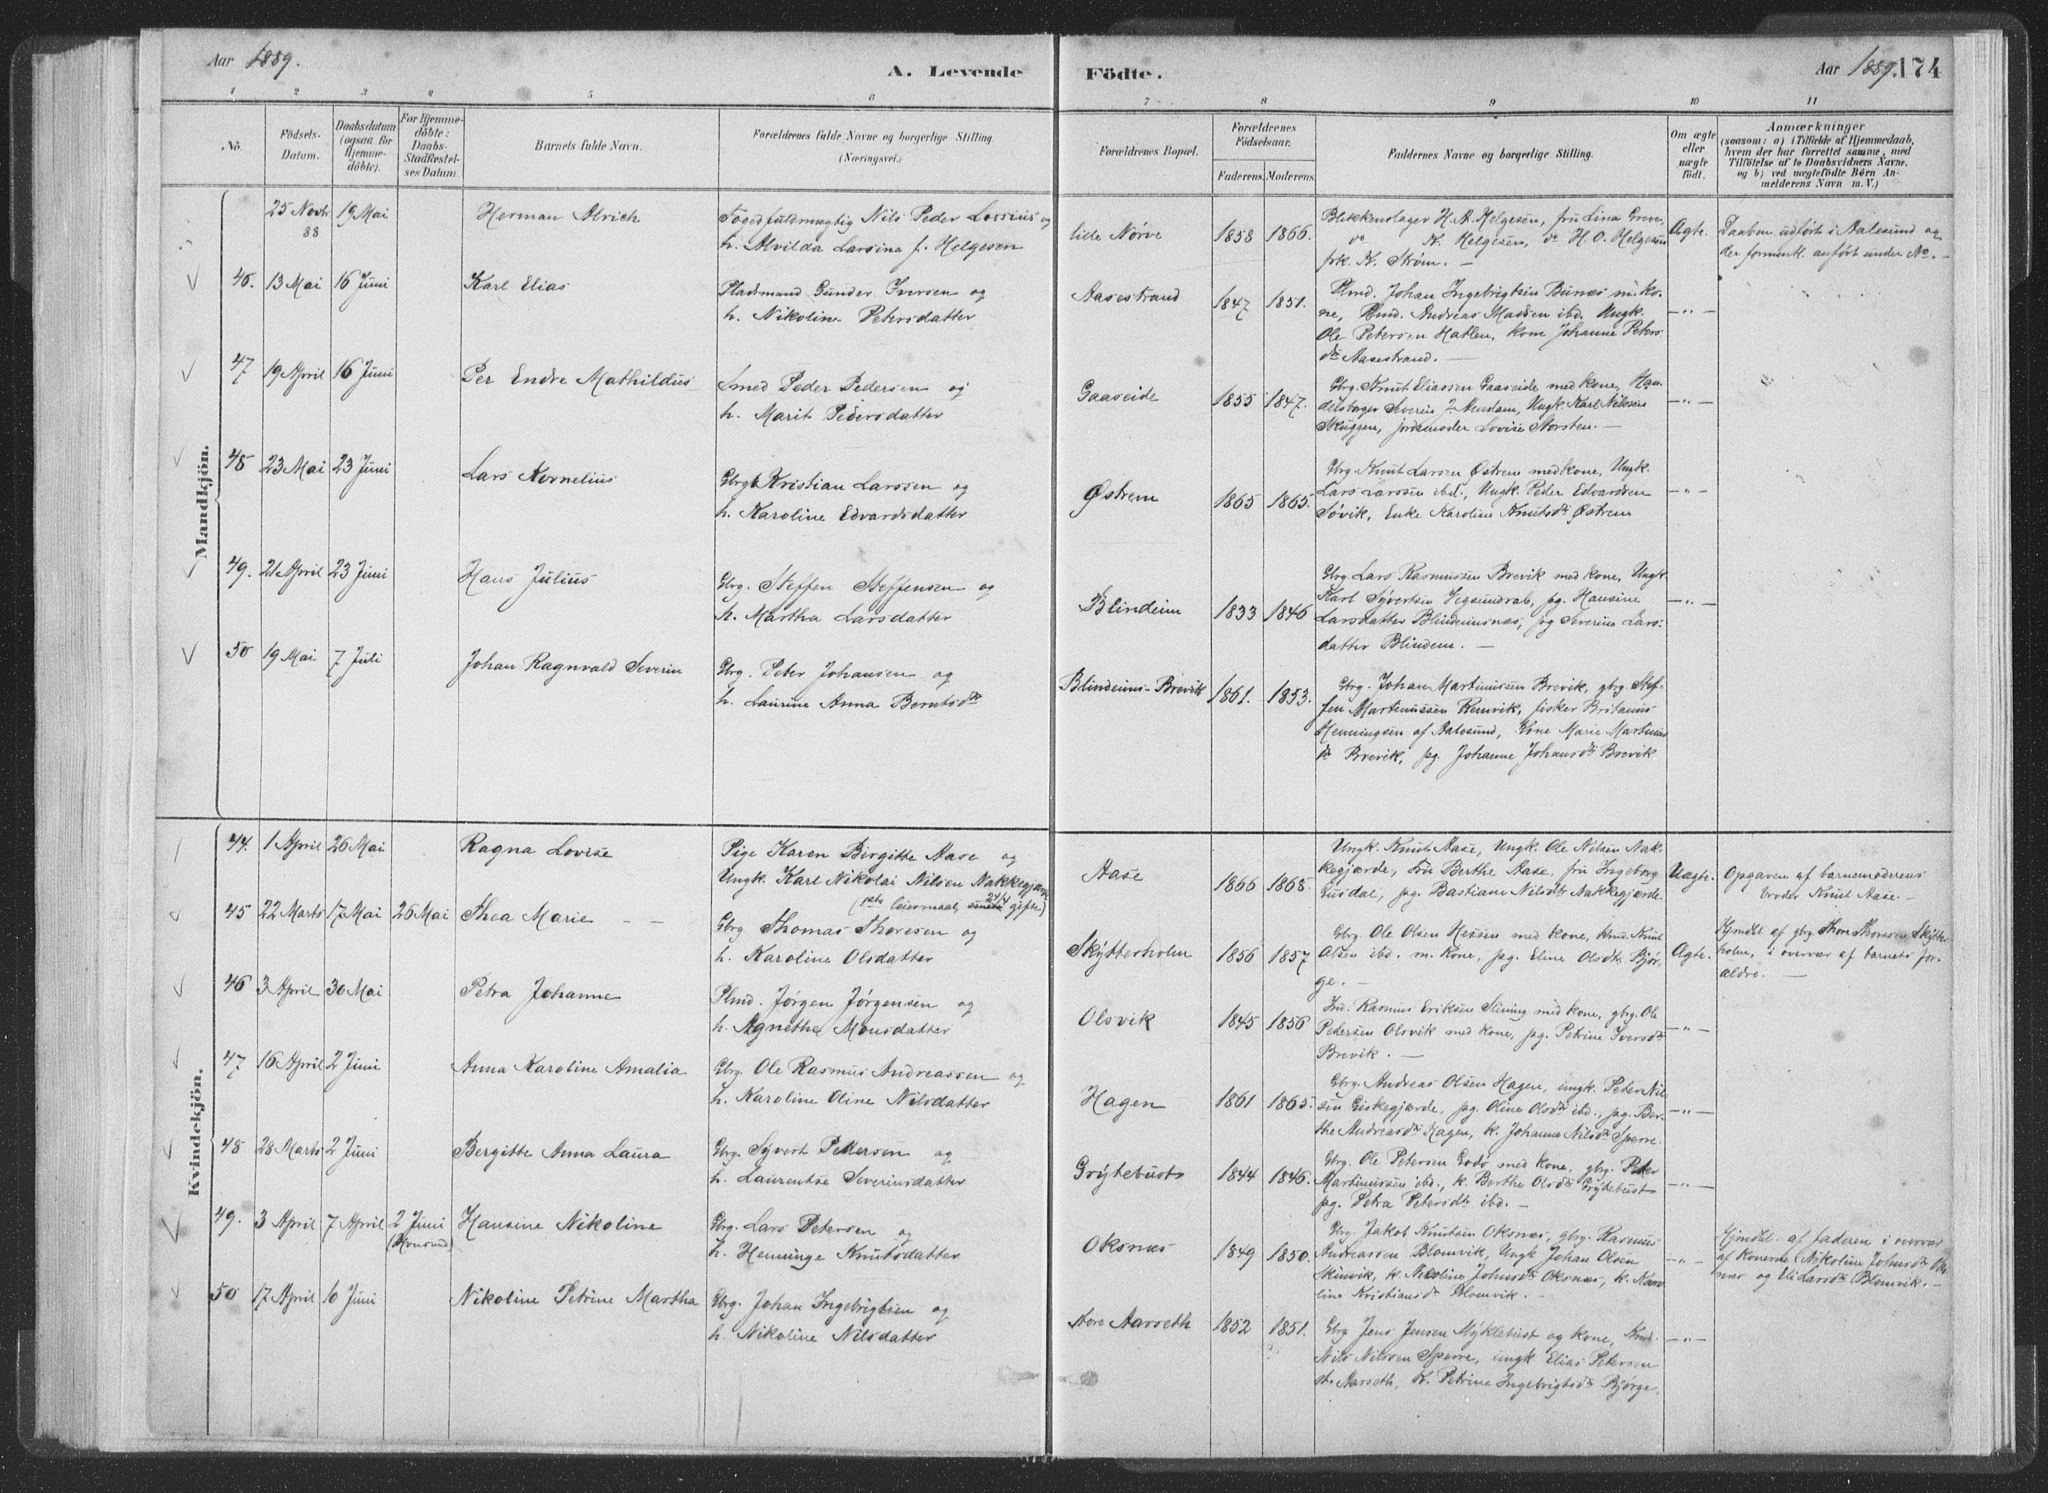 Aar 1889.
A. Levende
Födte.
Aar 1889.
174
1 2 3 4 5 6 7 8 9 10 11
No. Födsels-Datum. Daabsdatum (ogsaa for Hjemmedöbte). For Hjemmedöbte: Daabs-Stadfæstelses Datum. Barnets fulde Navn. Forældrenes fulde Navne og borgerlige Stilling. (Næringsvei.)
Forældrenes Bopæl. Forældrenes Födselsaar. Faderens. Moderens. Faddernes Navne og borgerlige Stilling. Om ægte eller uægte födt. Anmærkninger (saasom: a) i Tilfælde af Hjemmedaab, hvem der har forrettet samme, med Tilföielse af to Daabsvidners Navne. og b) ved uægtefödte Börn Anmelderens Navn m. V.)
Mandkjön.
25 Novbr 88 19 Mai Herman Ulrich Fogedfuldmægtig Nils Peder Lossius og
h. Alvilda Larsina f. Helgesen
lille Nørve 1858 1866. Blikkenslager H. A. Helgesen, fru Lina Greve,
do N. Helgesen, do H. O. Helgesen
frk. N. Strøm. —
Ægte. Daaben udført i Aalesund og
der formentl. anført under No. —
46. 13 Mai 16 Juni Karl Elias Pladsmand Gunder Iversen og
h. Nikoline Petersdatter
Aasestrand 1847 1851. Plmd. Johan Ingebrigtsen Bunes m. ko-
ne, Plmd. Andreas Madsen ibd. Ungk.
Ole Petersen Hatlen, kone Johanne Peters
dtr Aasestrand. —
— „ —
47 19 April 16 Juni Per Endre Mathildus Smed Peder Pedersen og
h. Marit Pedersdatter
Gaaseide 1855 1847. Gbrg. Knut Eliassen Gaaseide med kone, Han-
delsborger Severin J. Aendam, Ungk. Karl Nilssen
Skuggen, jordemoder Lovise Storsten. —
— „ —
48 23 Mai 23 Juni Lars Kornelius Gbrg. Kristian Larssen og
h. Karoline Edvardsdatter
Østrem 1865 1865. Gbrg. Knut Larsen Østrem med kone, Ungk.
Lars Larssen ibd., Ungk. Peder Edvardsen
Søvik, Enke Karoline Knutsdtr Østrem
— „ —
49. 21 April 23 Juni Hans Julius Gbrg. Steffen Steffensen og
h. Martha Larsdatter
Blindeim 1833 1846 Gbrg Lars Rasmussen Brevik med kone, Ungk.
Karl Syvertsen Vegsundrab, pg. Hansine
Larsdatter Blindeimsnæs, pg Severine Lars-
datter Blindem. —
— „ —
50 19 Mai 7 Juli Johan Ragnvald Severin Gbrg. Peter Johansen og
h. Laurine Anna Berntsdtr
Blindeims-Brevik 1861. 1853. Gbrg. Johan Martinussen Brevik, gbrg. Stef-
fen Martinussen Remvik, fisker Britanus
Henningsen af Aalesund, Kone Marie Martinus
dtr Brevik, pg. Johanne Johansdtr Brevik
Kvindekjön.
44. 1 April 26 Mai Ragna Lovise Pige Karen Birgitte Aase og
Ungk. Karl Nikolai Nilsen Nakkegjærde
(1ste leiermaal, gifte)
Aase 1866 1868. Ungk. Knut Aase, Ungk. Ole Nilsen Nak-
kegjærde, Fru Berthe Aase, fru Ingeborg
Gusdal, pg. Bastiane Nilsdtr Nakkegjærde.
Uægte. Opgaven af barnemoderens
broder Knut Aase. —
45 22 Marts 17 Mai 26 Mai Thea Marie — — Gbrg Thomas Thoresen og
h. Karoline Olsdatter
Skytterholm 1856 1857 Gbrg. Ole Olsen Hessen med kone, Knud
Olsen ibd. m. kone, pg. Eline Olsdtr Bjør-
ge. —
Ægte. Hjmdøbt af gbrg. Thore Thoresen Skytter-
holm, i overvær af barnets for-
ældre. —
46 3 April 30 Mai Petra Johanne Plmd. Jørgen Jørgensen og
h. Agnethe Monsdatter
Olsvik 1845 1856 Ind. Rasmus Eriksen Slining med kone, gbrg. Ole
Petersen Olsvik med kone, pg. Petrine Iversdtr
Brevik. —
— „ —
47 16 April 2 Juni Anna Karoline Amalia Gbrg. Ole Rasmus Andreassen og
h. Karoline Oline Nilsdatter
Hagen 1861 1865. Gbrg. Andreas Olsen Hagen, ungk. Peter Nil-
sen Giskegjærde, pg. Oline Olsdtr ibd., pg. Ber-
the Andreasdtr Hagen, k. Johanne Nilsdtr Sperre.
— „ —
48 28 Marts 2 Juni Bergitte Anna Laura Gbrg. Syvert Pettersen og
h. Laurentse Severinsdatter
Grytebust 1844 1846. Gbrg. Ole Petersen Godø med kone, gbrg. Peder
Martinussen ibd., k. Berthe Olsdtr Grytebust
pg. Petra Petersdtr ibd. —
— „ —
49. 3 April 7 April 2 Juni Hansine Nikoline Gbrg. Lars Petersen og
h. Henninge Knutsdatter
Oksnæs 1849 1850. Gbrg. Jakob Knutsen Oksnæs, gbrg. Rasmus
Andreassen Blomvik, Ungk Johan Olsen
Skinvik, k. Nicoline Johnsdtr Oksnæs, k. Karo-
line Kristiansdtr Blomvik. —
— „ — Hjmdøbt af faderen i overvær
af konerne Nikoline Johnsdtr Oks-
næs og Eli Larsdtr Blomvik. —
50 17 April 10 Juni Nikoline Petrine Martha Gbrg. Johan Ingebrigtsen og
h. Nikoline Nilsdatter
store Aarseth 1852 1851. Gbrg Jens Jensen Myklebust og kone,
Nils Nilssen Sperre, ungk Elias Petersen
st. Aarseth, k. Petrine Ingebrigtsdtr Bjørge.
— „ —